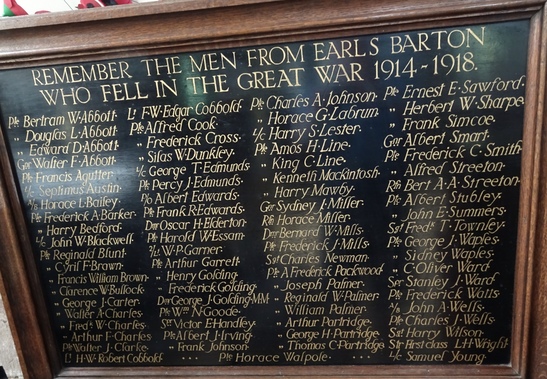 REMEMBER THE MEN FROM EARLS BARTON
WHO FELL IN THE GREAT WAR 1914-1918.
Pte Bertram W. Abbott
" Douglas L. Abbott
" Edward D. Abbott
Gnr Walter F. Abbott
Pte Francis Agutter
L/c Septimus Austin
A/b Horace L. Bailey
Pte Frederick A. Barker
" Harry Bedford
L/c John W. Blackwell
Pte Reginald Blunt
" Cyril F. Brown
" Francis William Brown
" Clarence W. Bullock
" George J. Carter
" Walter A. Charles
" Fredk W. Charles
" Arthur F. Charles
Pte Walter J. Clarke
Lt H. W. Robert Cobbold
Lt F. W. Edgar Cobbold
Pte Alfred Cook
" Frederick Cross
" Silas W. Dunkley
L/c George T. Edmunds
Pte Percy J. Edmunds
Po Albert Edwards
Pte Frank R. Edwards
Dvr Oscar H. Elderton
Pte Harold W. Essam
W. P. Garner
Pte Arthur Garrett
" Henry Golding
" Frederick Golding
Dvr George J. Golding MM
Pte Wm N. Goode
Str Victor E. Handley
Pte Albert J. Irving
" Frank Johnson
Pte Charles A. Johnson
" Horace G. Labrum
L/c Harry S. Lester
Pte Amos H. Line
" King C. Line
" Kenneth Mackintosh
" Harry Mawby
Gnr Sydney L. Miller
Rfn Horace Miller
Dvr Bernard W. Mills
Pte Frederick J. Mills
Sgt Charles Newman
Pte A Frederick Packwood
" Joseph Palmer
" Reginald W. Palmer
" William Palmer
" Arthur Partridge
" George H. Partridge
" Thomas C. Partridge
Pte Horace Walpole
Pte Ernest E. Sawford
" Herbert W. Sharpe
" Frank Simcoe
Gnr Albert Smart
Pte Frederick C. Smith
" Alfred Streeton
Rfn Bert A. A. Streeton
Pte Albert Stubley
" John E. Summers
Sgt Fredk T. Townley
Pte George J. Waples
" Sidney Waples
" C. Oliver Ward
Ser Stanley J. Ward
Pte Frederick Watts
A/b John A. Wells
Pte Charles J. Wells
Sgt Harry Wilson
Str First class L. H. Wright
L/c Samuel Young